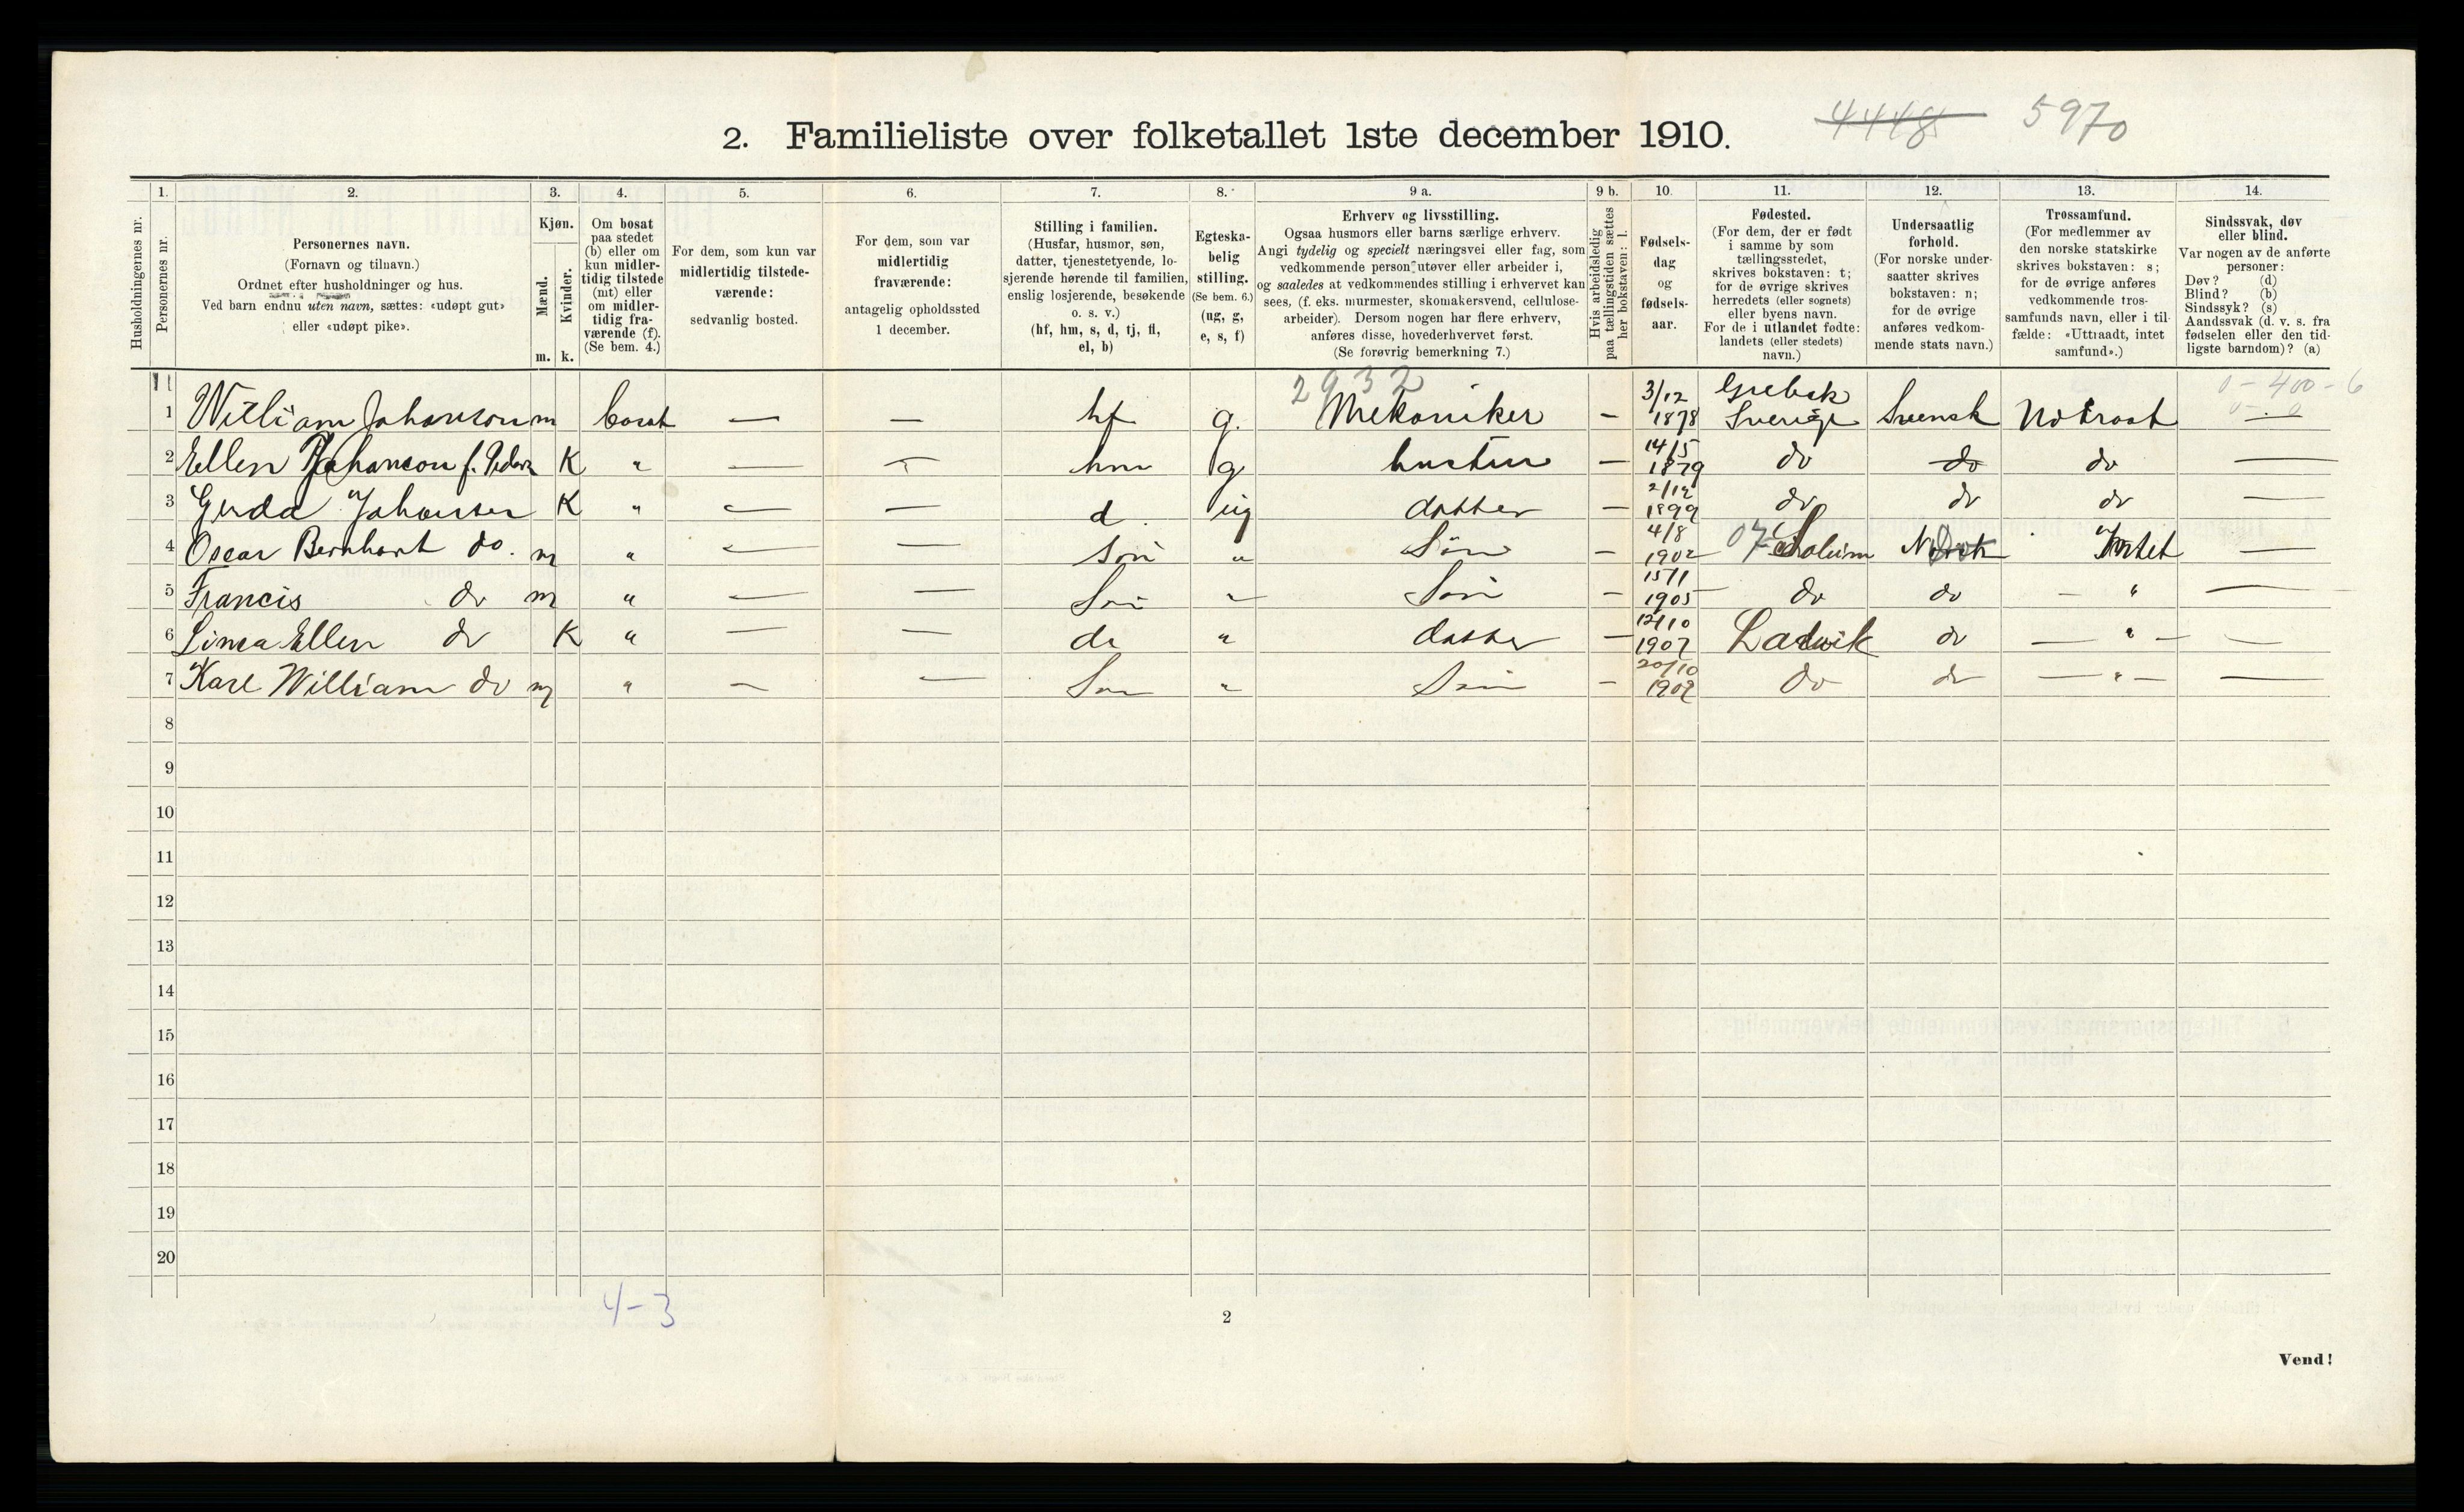 2. Familieliste over folketallet 1ste december 1910.
4448 5970
Husholdningernes nr.
1. Personernes nr.
2. Personernes navn.
(Fornavn og tilnavn.)
Ordnet efter husholdninger og hus.
Ved barn endnu uten navn, sættes: «udøpt gut»
eller «udøpt pike».
3. Kjøn.
Mænd. m.
Kvinder. k.
4. Om bosat
paa stedet
(b) eller om
kun midler-
tidig tilstede
(mt) eller
om midler-
tidig fra-
værende (f).
(Se bem. 4.)
5. For dem, som kun var
midlertidig tilstede-
værende:
sedvanlig bosted.
6. For dem, som var
midlertidig
fraværende:
antagelig opholdssted
1 december.
7. Stilling i familien.
(Husfar, husmor, søn,
datter, tjenestetyende, lo-
sjerende hørende til familien,
enslig losjerende, besøkende
o. s. v.)
(hf, hm, s, d, tj, fl,
el, b)
8. Egteska-
belig
stilling.
(Se bem. 6.)
(ug, g,
e, s, f)
9 a. Erhverv og livsstilling.
Ogsaa husmors eller barns særlige erhverv.
Angi tydelig og specielt næringsvei eller fag, som
vedkommende person utøver eller arbeider i,
og saaledes at vedkommendes stilling i erhvervet kan
sees, (f. eks. murmester, skomakersvend, cellulose-
arbeider). Dersom nogen har flere erhverv,
anføres disse, hovederhvervet først.
(Se forøvrig bemerkning 7.)
9 b. Hvis arbeidsledig
paa tællingstiden sættes
her bokstaven: l.
10. Fødsels-
dag
og
fødsels-
aar.
11. Fødested.
(For dem, der er født
i samme by som
tællingsstedet,
skrives bokstaven: t;
for de øvrige skrives
herredets (eller sognets)
eller byens navn.
For de i utlandet fødte:
landets (eller stedets)
navn.)
12. Undersaatlig
forhold.
(For norske under-
saatter skrives
bokstaven: n;
for de øvrige
anføres vedkom-
mende stats navn.)
13. Trossamfund.
(For medlemmer av
den norske statskirke
skrives bokstaven: s;
for de øvrige anføres
vedkommende tros-
samfunds navn, eller i til-
fælde: «Uttraadt, intet
samfund».)
14. Sindssvak, døv
eller blind.
Var nogen av de anførte
personer:
Døv? (d)
Blind? (b)
Sindssyk? (s)
Aandssvak (d. v. s. fra
fødselen eller den tid-
ligste barndom)? (a)
2932 0-400-6
1 William Johanson m bosat — — hf g. Mekaniker - 3/12 1878 Grebek Sverige Svensk —
2 Ellen Johanson f. K " — — hm g hustru — 14/5 1879 do do do —
3 Gerda Johansen K " — — d. ug datter — 2/12 1899 do do do —
4 Oscar Bernhart do. m " — — Søn " Søn - 4/8 1902 07 Solum Norsk Intet —
5 Francis do m " — — Søn " Søn - 15/1 1905 do do — " —
6 Ellen do K " — — dr " datter — 12/10 1907 Larvik do — " — —
7 Karl William do m " — — Søn " Søn - 20/10 1909 do do — " — —
8
9
10
11
12
13
14
15
16
17
18
19
20
4-3
2
Vend!